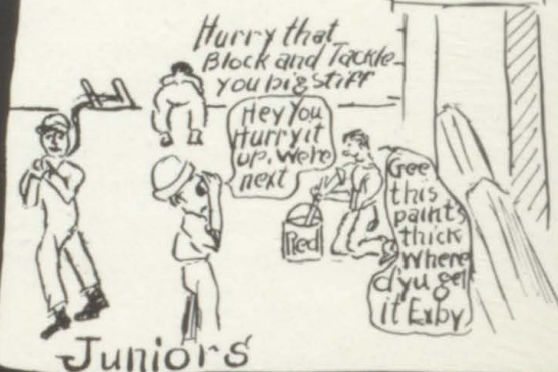 Hurry that
Block and Tackle
you big stiff
Hey You
Hurry it
up, We're
next
Gee
this
paint's
thick
Where
d'yu get
it Exby
Red
Juniors